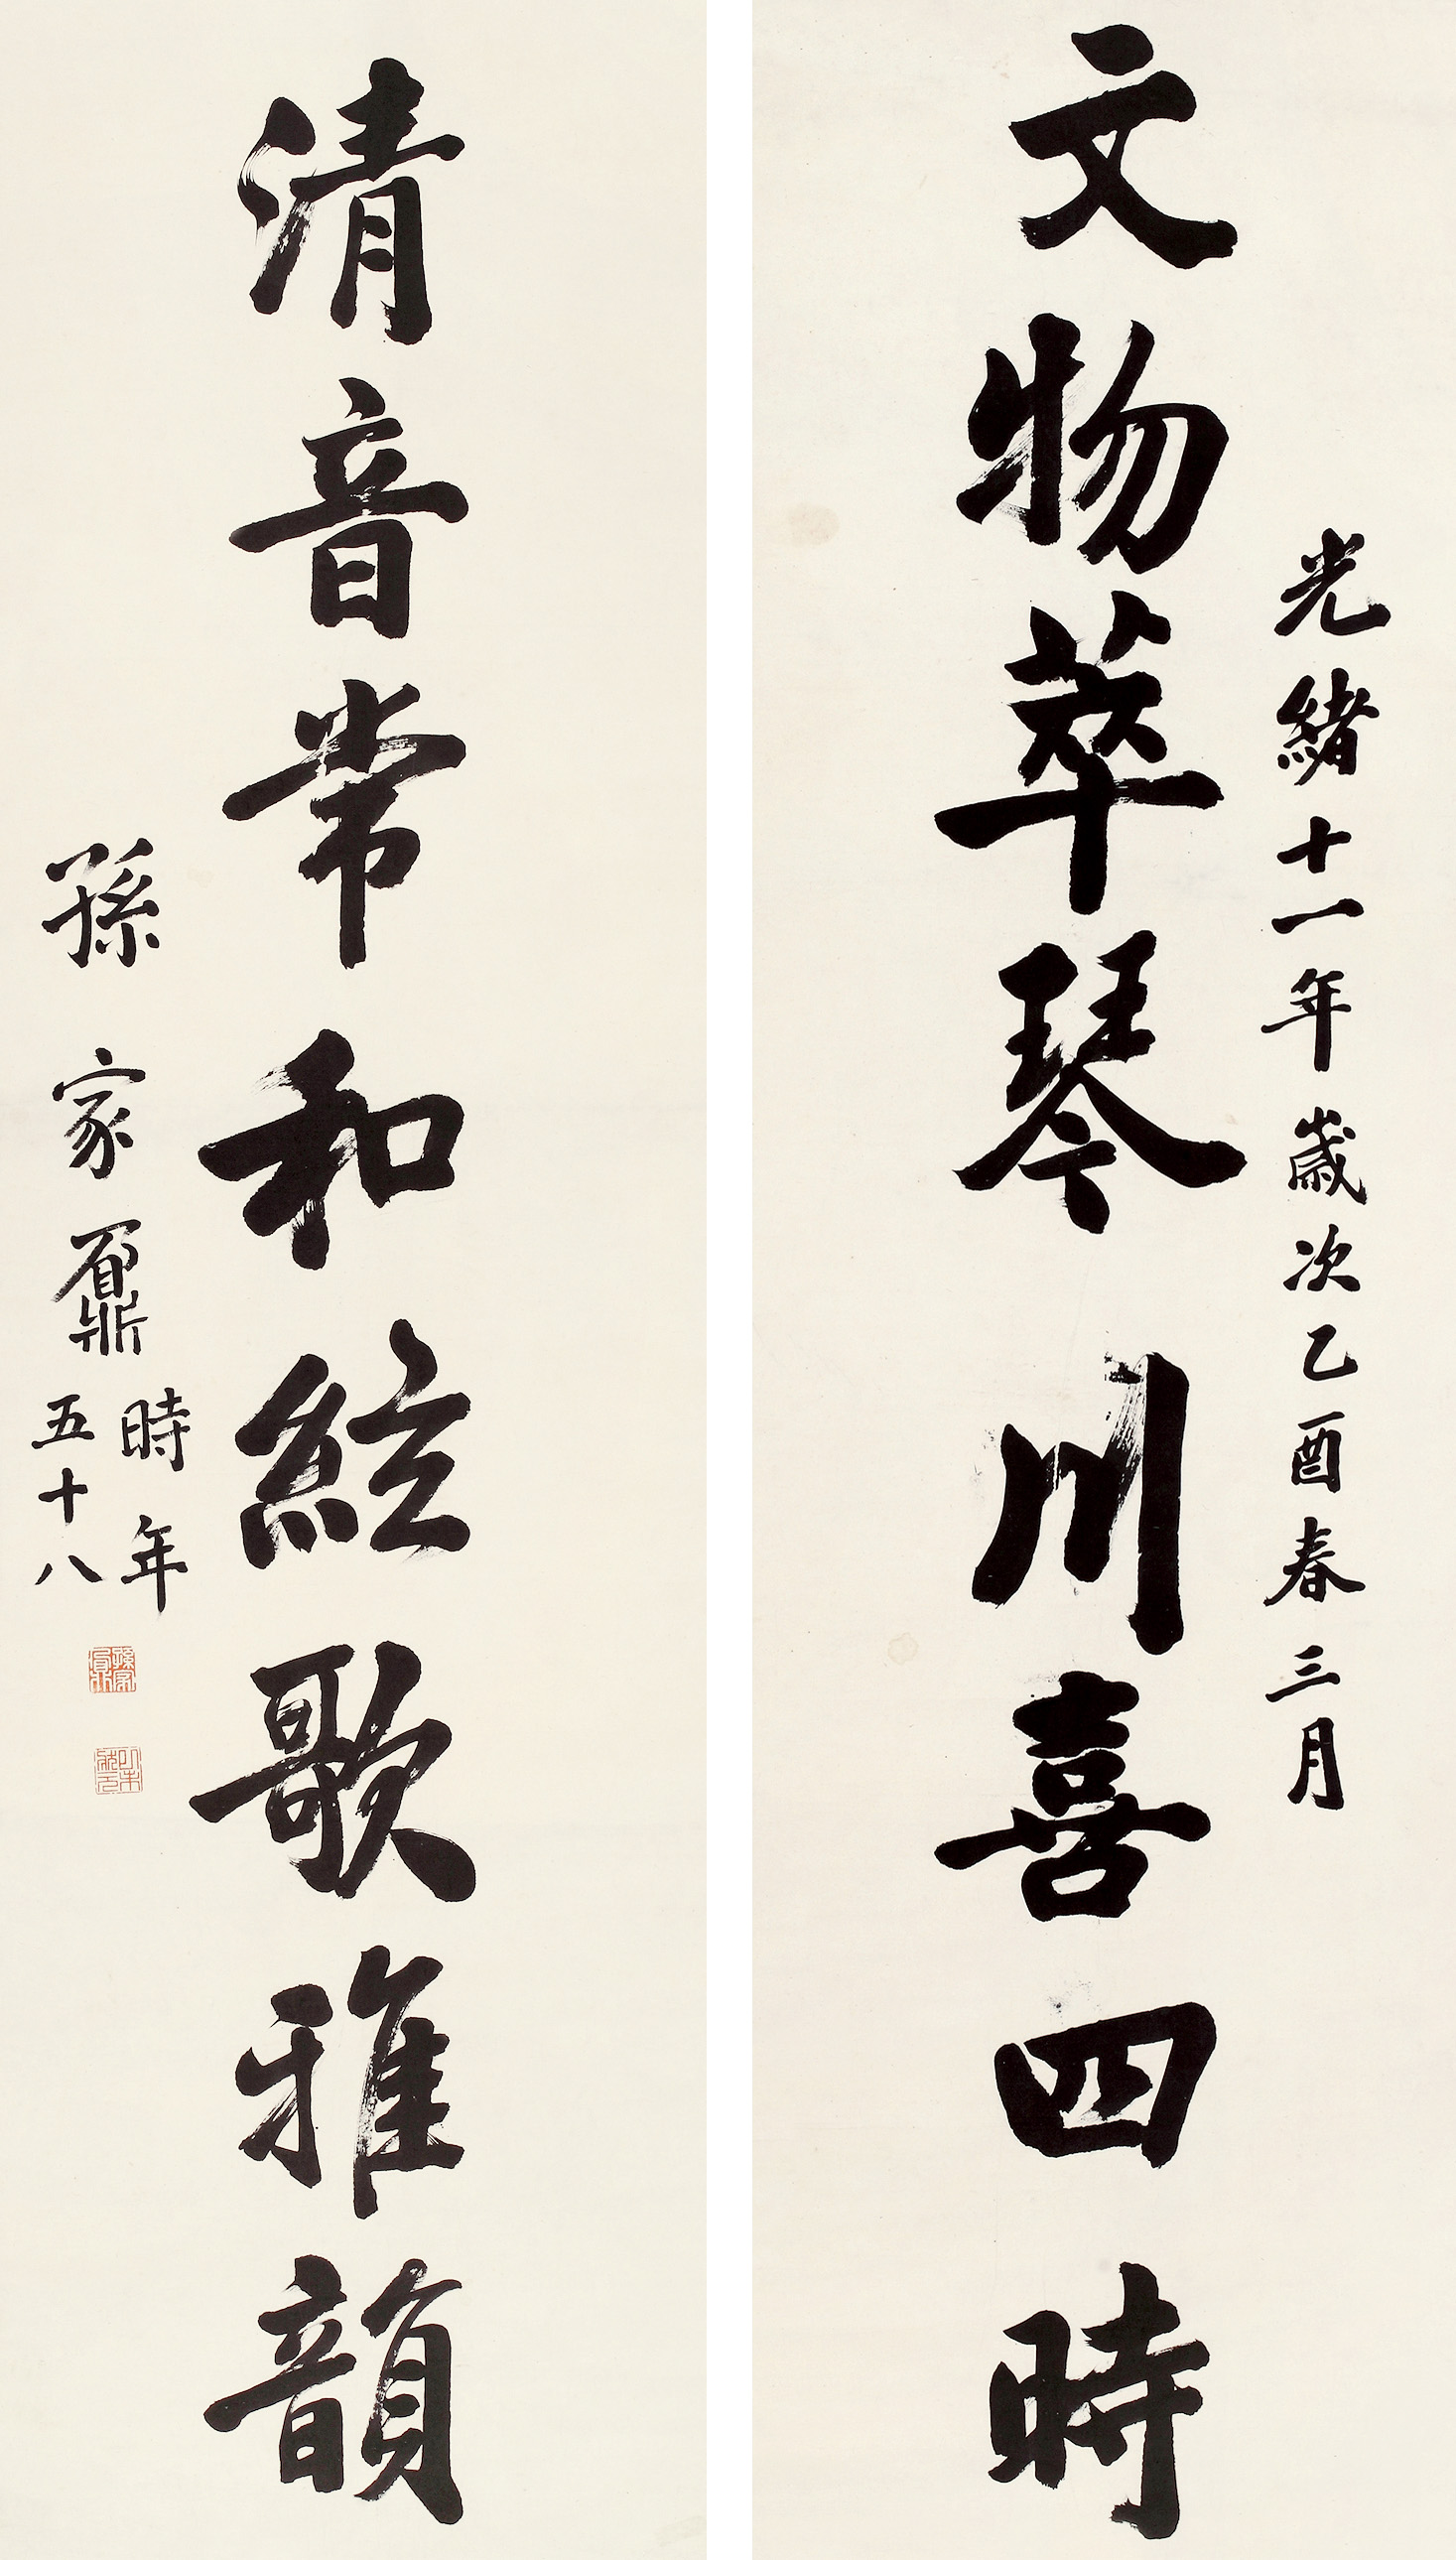 光緒十一年歲次乙酉春三月
文物萃琴川喜四時
清音常和絃歌雅韻
孫家鼐
時年
五十八